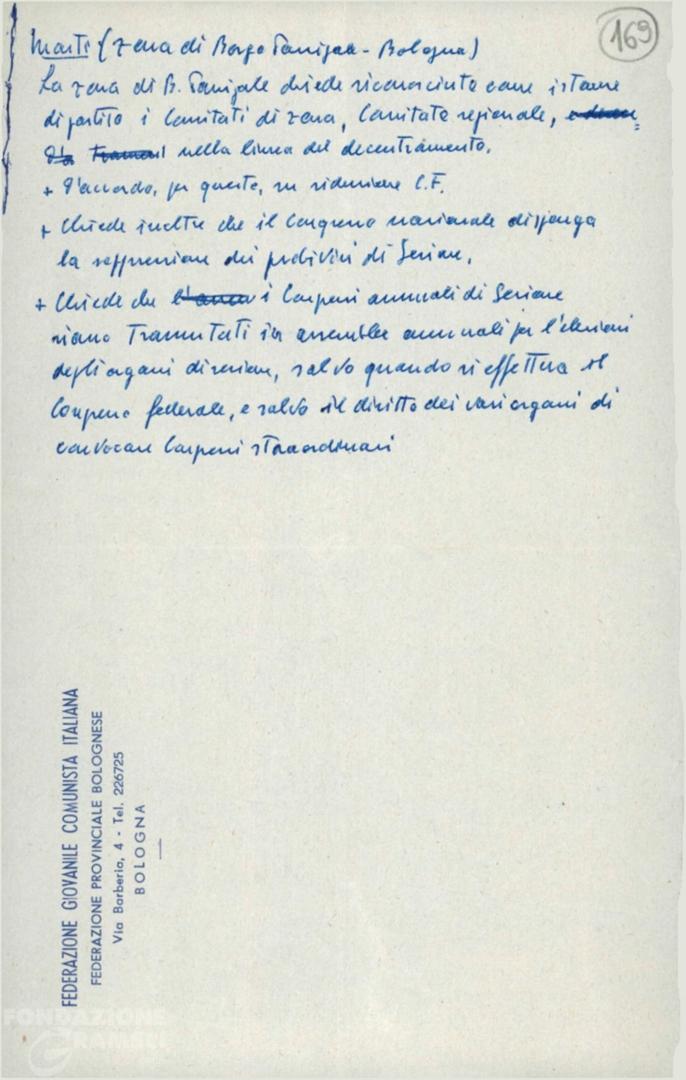 169
Marti (zona di Borgo Panigale - Bologna)
La zona di B. Panigale chiede riconosciuto come istanze
di partito i Comitati di zona, Comitato regionale,
nella linea del decentramento.
+ D'accordo, per questo, su riduzione C.F.
+ Chiede inoltre che il Congresso nazionale disponga
la soppressione dei probiviri di Sezione.
+ Chiede che i Congressi annuali di Sezione
siano tramutati in assemblee annuali per l'elezioni
degli organi di sezione, salvo quando si effettua il
Congresso federale, e salvo il diritto dei vari organi di
convocare Congressi straordinari
FEDERAZIONE GIOVANILE COMUNISTA ITALIANA
FEDERAZIONE PROVINCIALE BOLOGNESE
Via Barberia, 4 - Tel. 226725
BOLOGNA
FONDAZIONE
GRAMSCI